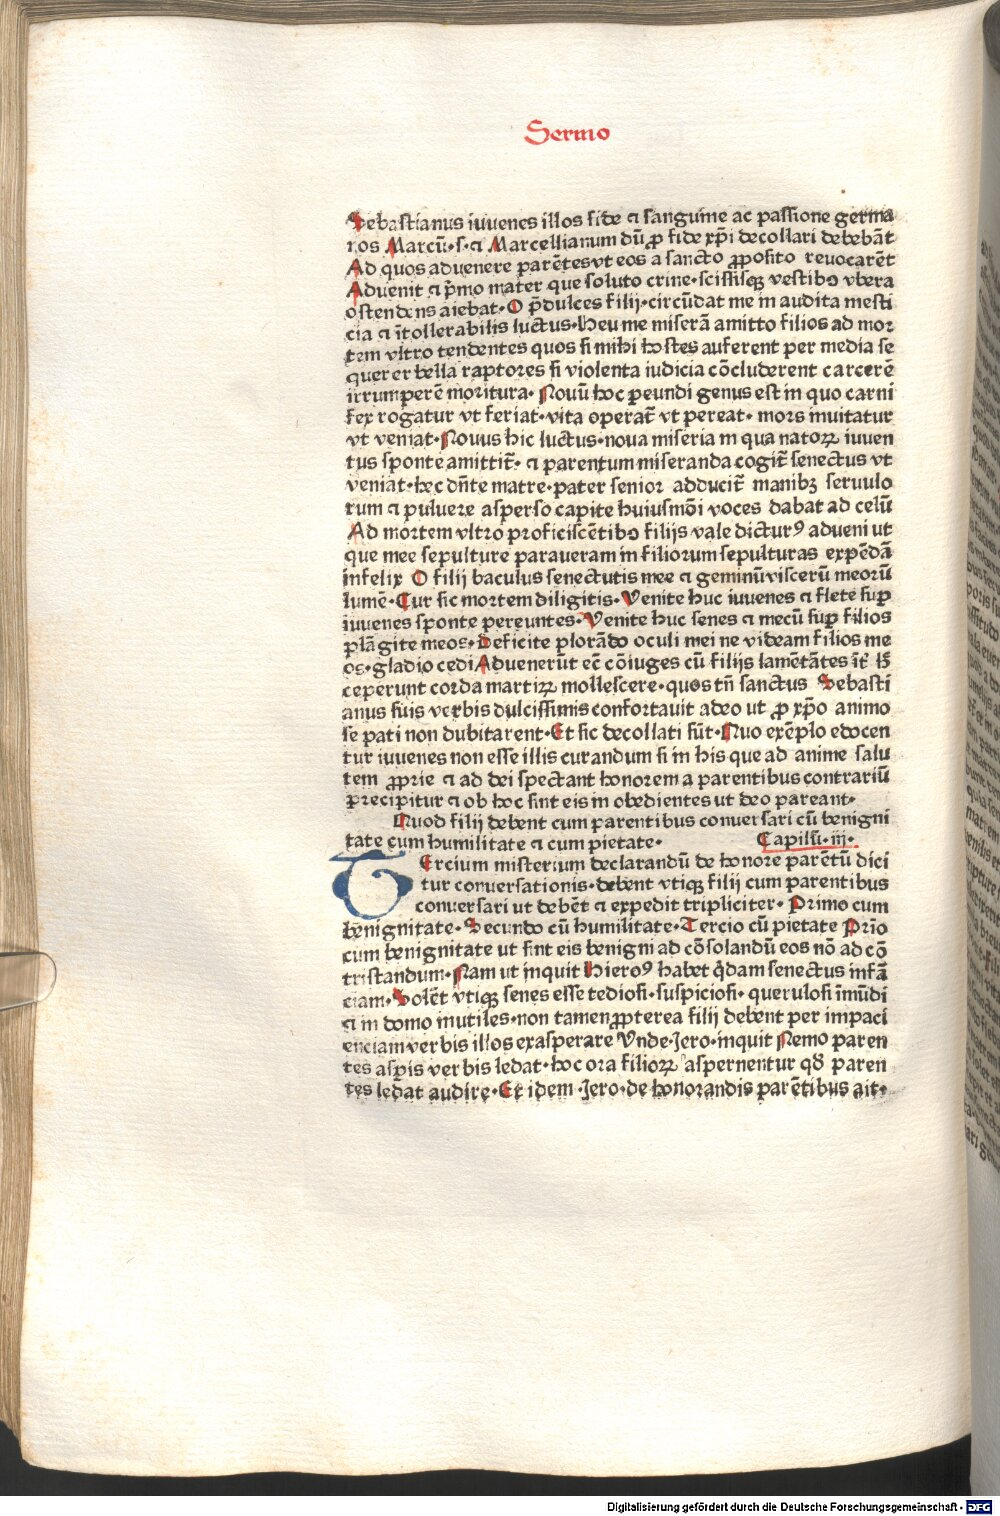 Sermo
Sebastianus iuuenes illos fide ⁊ sanguine ac passione germa
nos Marcū·s·⁊ Marcellianum dū ꝓ fide xp̄i decollari debebāt
Ad quos aduenere parētes vt eos a sancto ꝓposito reuocarēt
Aduenit ⁊ p̄mo mater que soluto crine·scissisqꝫ vestibꝰ vbera
ostendens aiebat·O p̄dulces filij·circūdat me in audita mesti
cia ⁊ ītollerabilis luctus·Heu me miserā amitto filios ad mor
tem vltro tendentes quos si mihi hostes auferent per media se
querer bella raptores si violenta iudicia cōcluderent carcerē
irrumperē moritura· Nouū hoc ꝑeundi genus est in quo carni
fex rogatur vt feriat·vita operat̄ vt pereat· mors inuitatur
vt veniat·Nouus hic luctus·noua miseria in qua natoꝝ iuuen
tus sponte amittit̄· ⁊ parentum miseranda cogit̄ senectus vt
veniat·hec dn̄te matre·pater senior adducit̄ manibꝫ seruulo
rum ⁊ puluere asperso capite huiusmōi voces dabat ad celū
Ad mortem vltro proficiscētibꝰ filijs vale dicturꝰ adueni ut
que mee sepulture paraueram in filiorum sepulturas expēdā
infelix O filij baculus senectutis mee ⁊ geminū viscerū meorū
lumē·Cur sic mortem diligitis·Venite huc iuuenes ⁊ flete suꝑ
iuuenes sponte pereuntes·Venite huc senes ⁊ mecū suꝑ filios
plāgite meos·Deficite plorādo oculi mei ne videam filios me
os·gladio cedi Aduenerūt ec̄ cōiuges cū filijs lamētātes īt̄ h̄
ceperunt corda martiꝝ mollescere·quos tn̄ sanctus Sebasti
anus suis verbis dulcissimis confortauit adeo ut ꝓ xp̄o animo
se pati non dubitarent·Et sic decollati sūt·Quo exēplo edocen
tur iuuenes non esse illis curandum si in his que ad anime salu
tem ꝓprie ⁊ ad dei spectant honorem a parentibus contrariū
precipitur ⁊ ob hoc sint eis in obedientes ut deo pareant·
Quod filij debent cum parentibus conuersari cū benigni
tate cum humilitate ⁊ cum pietate· Capilū·iij·
Tercium misterium declarandū de honore parētū dici
tur conuersationis·debent vtiqꝫ filij cum parentibus
conuersari ut debēt ⁊ expedit tripliciter· Primo cum
benignitate·Secundo cū humilitate·Tercio cū pietate Prīo
cum benignitate ut sint eis benigni ad cōsolandū eos nō ad cō
tristandum·Nam ut inquit Hieroꝰ habet q̄dam senectus infā
ciam·Solēt vtiqꝫ senes esse tediosi·suspiciosi·querulosi īmūdi
⁊ in domo inutiles·non tamen ꝓpterea filij debent per impaci
enciam verbis illos exasperare Vnde·Jero·inquit Nemo paren
tes asꝑis verbis ledat·hoc ora filioꝝ aspernentur qd̄ paren
tes ledāt audire·Et idem·Jero·de honorandis parētibus ait·
Digitalisierung gefördert durch die Deutsche Forschungsgemeinschaft - DFG